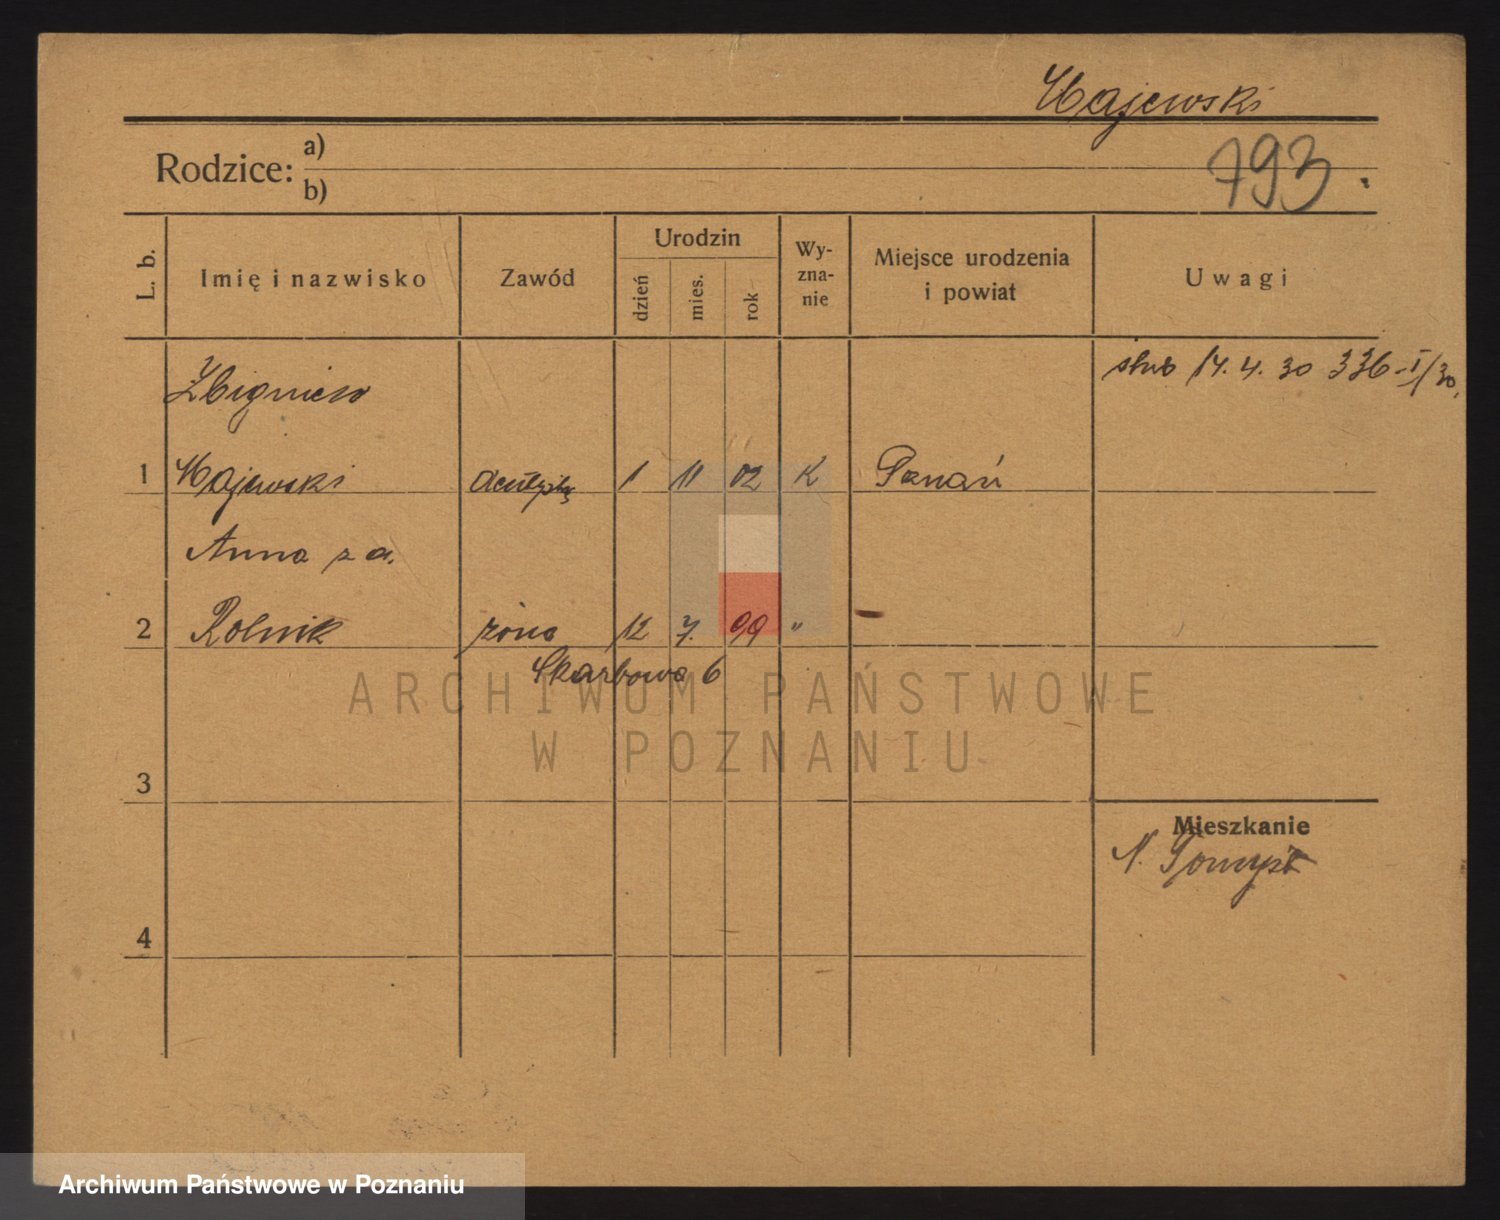 Majewski
793.
Rodzice: a)
b)
L. b.
Imię i nazwisko
Zawód
Urodzin
dzień
mies.
rok
Wy-
zna-
nie
Miejsce urodzenia
i powiat
Uwagi
ślub 14. 4. 30 336-I/30.
Zbigniew
1 Majewski 1 11 02 K Poznań
Anna z d.
2 Rolnik żona 12 7. 99 "
Skarbowa 6
ARCHIWUM PAŃSTWOWE
W POZNANIU
3
Mieszkanie
N. Tomyśl
4
Archiwum Państwowe w Poznaniu